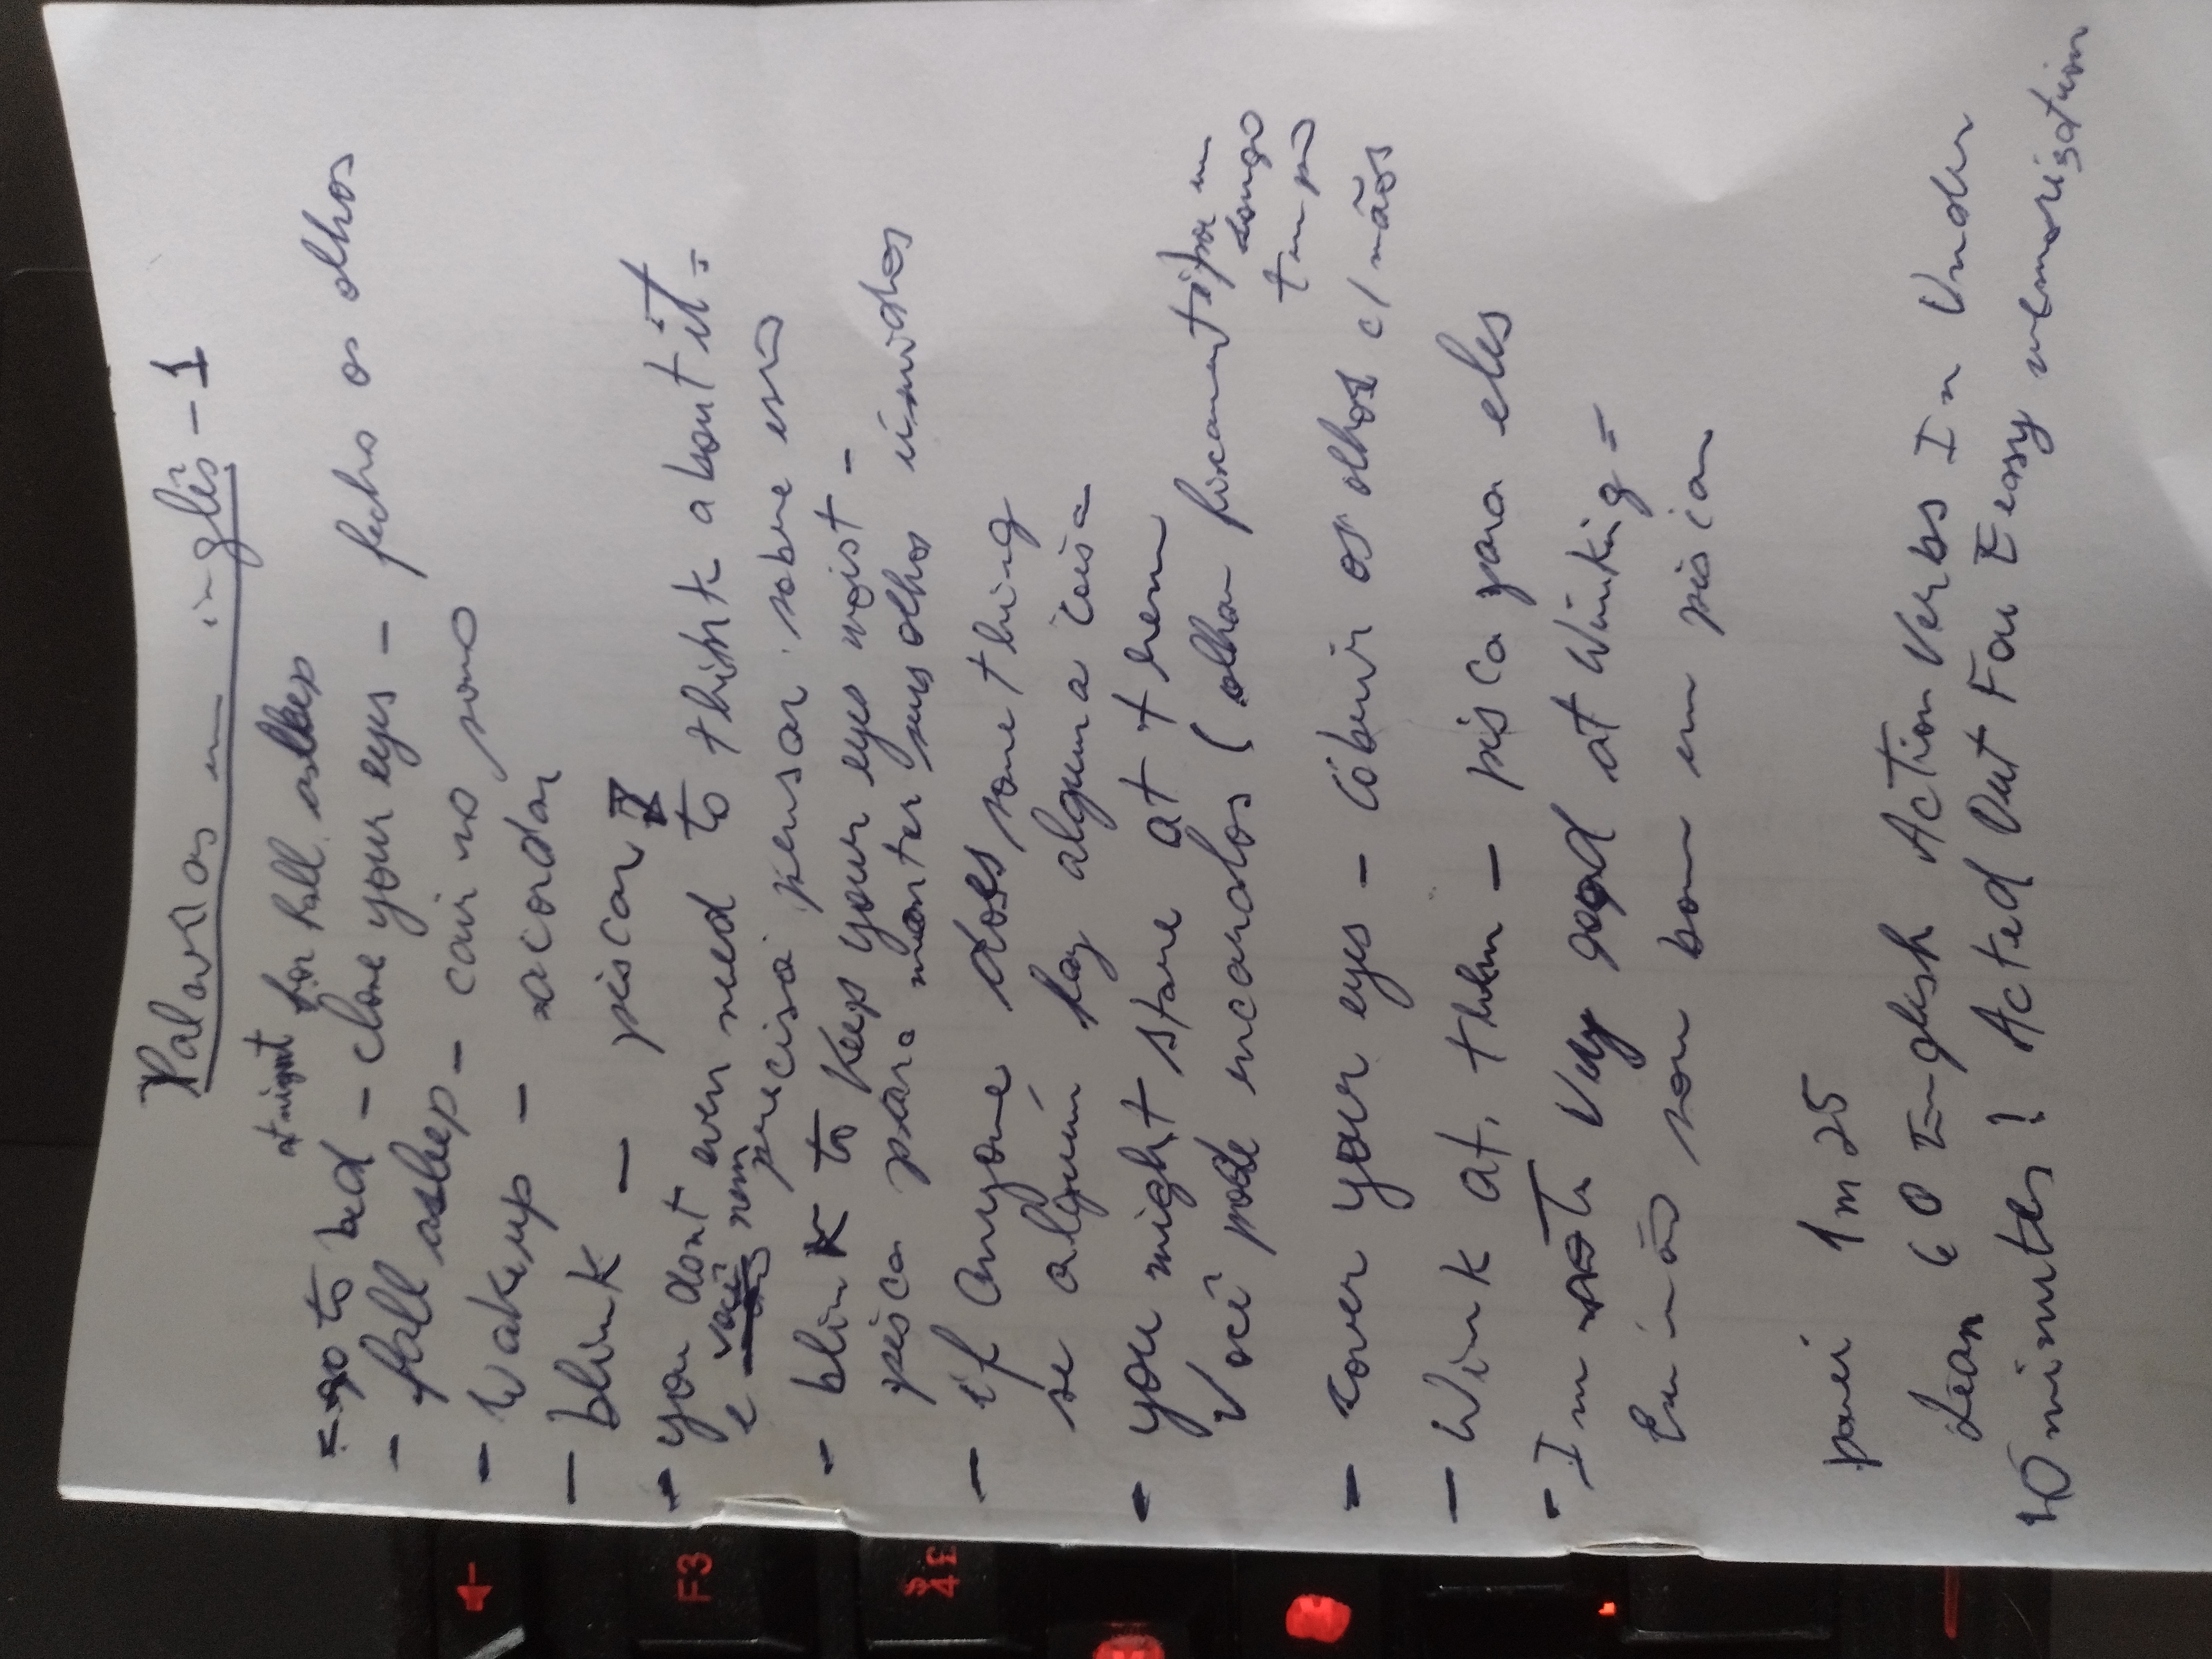 Palavras em inglês - 1
at night for fall asleep
- go to bed - close your eyes - fecho os olhos
- fall asleep - cair no sono
- Wakeup - acordar
- blink - piscar
- you dont even need to think about it =
e você nem precisa pensar sobre isso
- blink to Keep your eyes moist -
pisca para manter seus olhos úmidos
- if anyone does something
se alguém faz alguma coisa
- you might stare at them
Você pode encaralos ( olhar fixamente por um
longo
tempo
- cover your eyes - cobrir os olhos c/ mãos
- Wink at them - pisca para eles
- Im not Very good at Winking =
Eu não sou bom em piscar
parei 1m25
Lean 60 English Action Verbs In Under
10 minutes! Acted Out For Eeasy memorization
F3
$
4 £